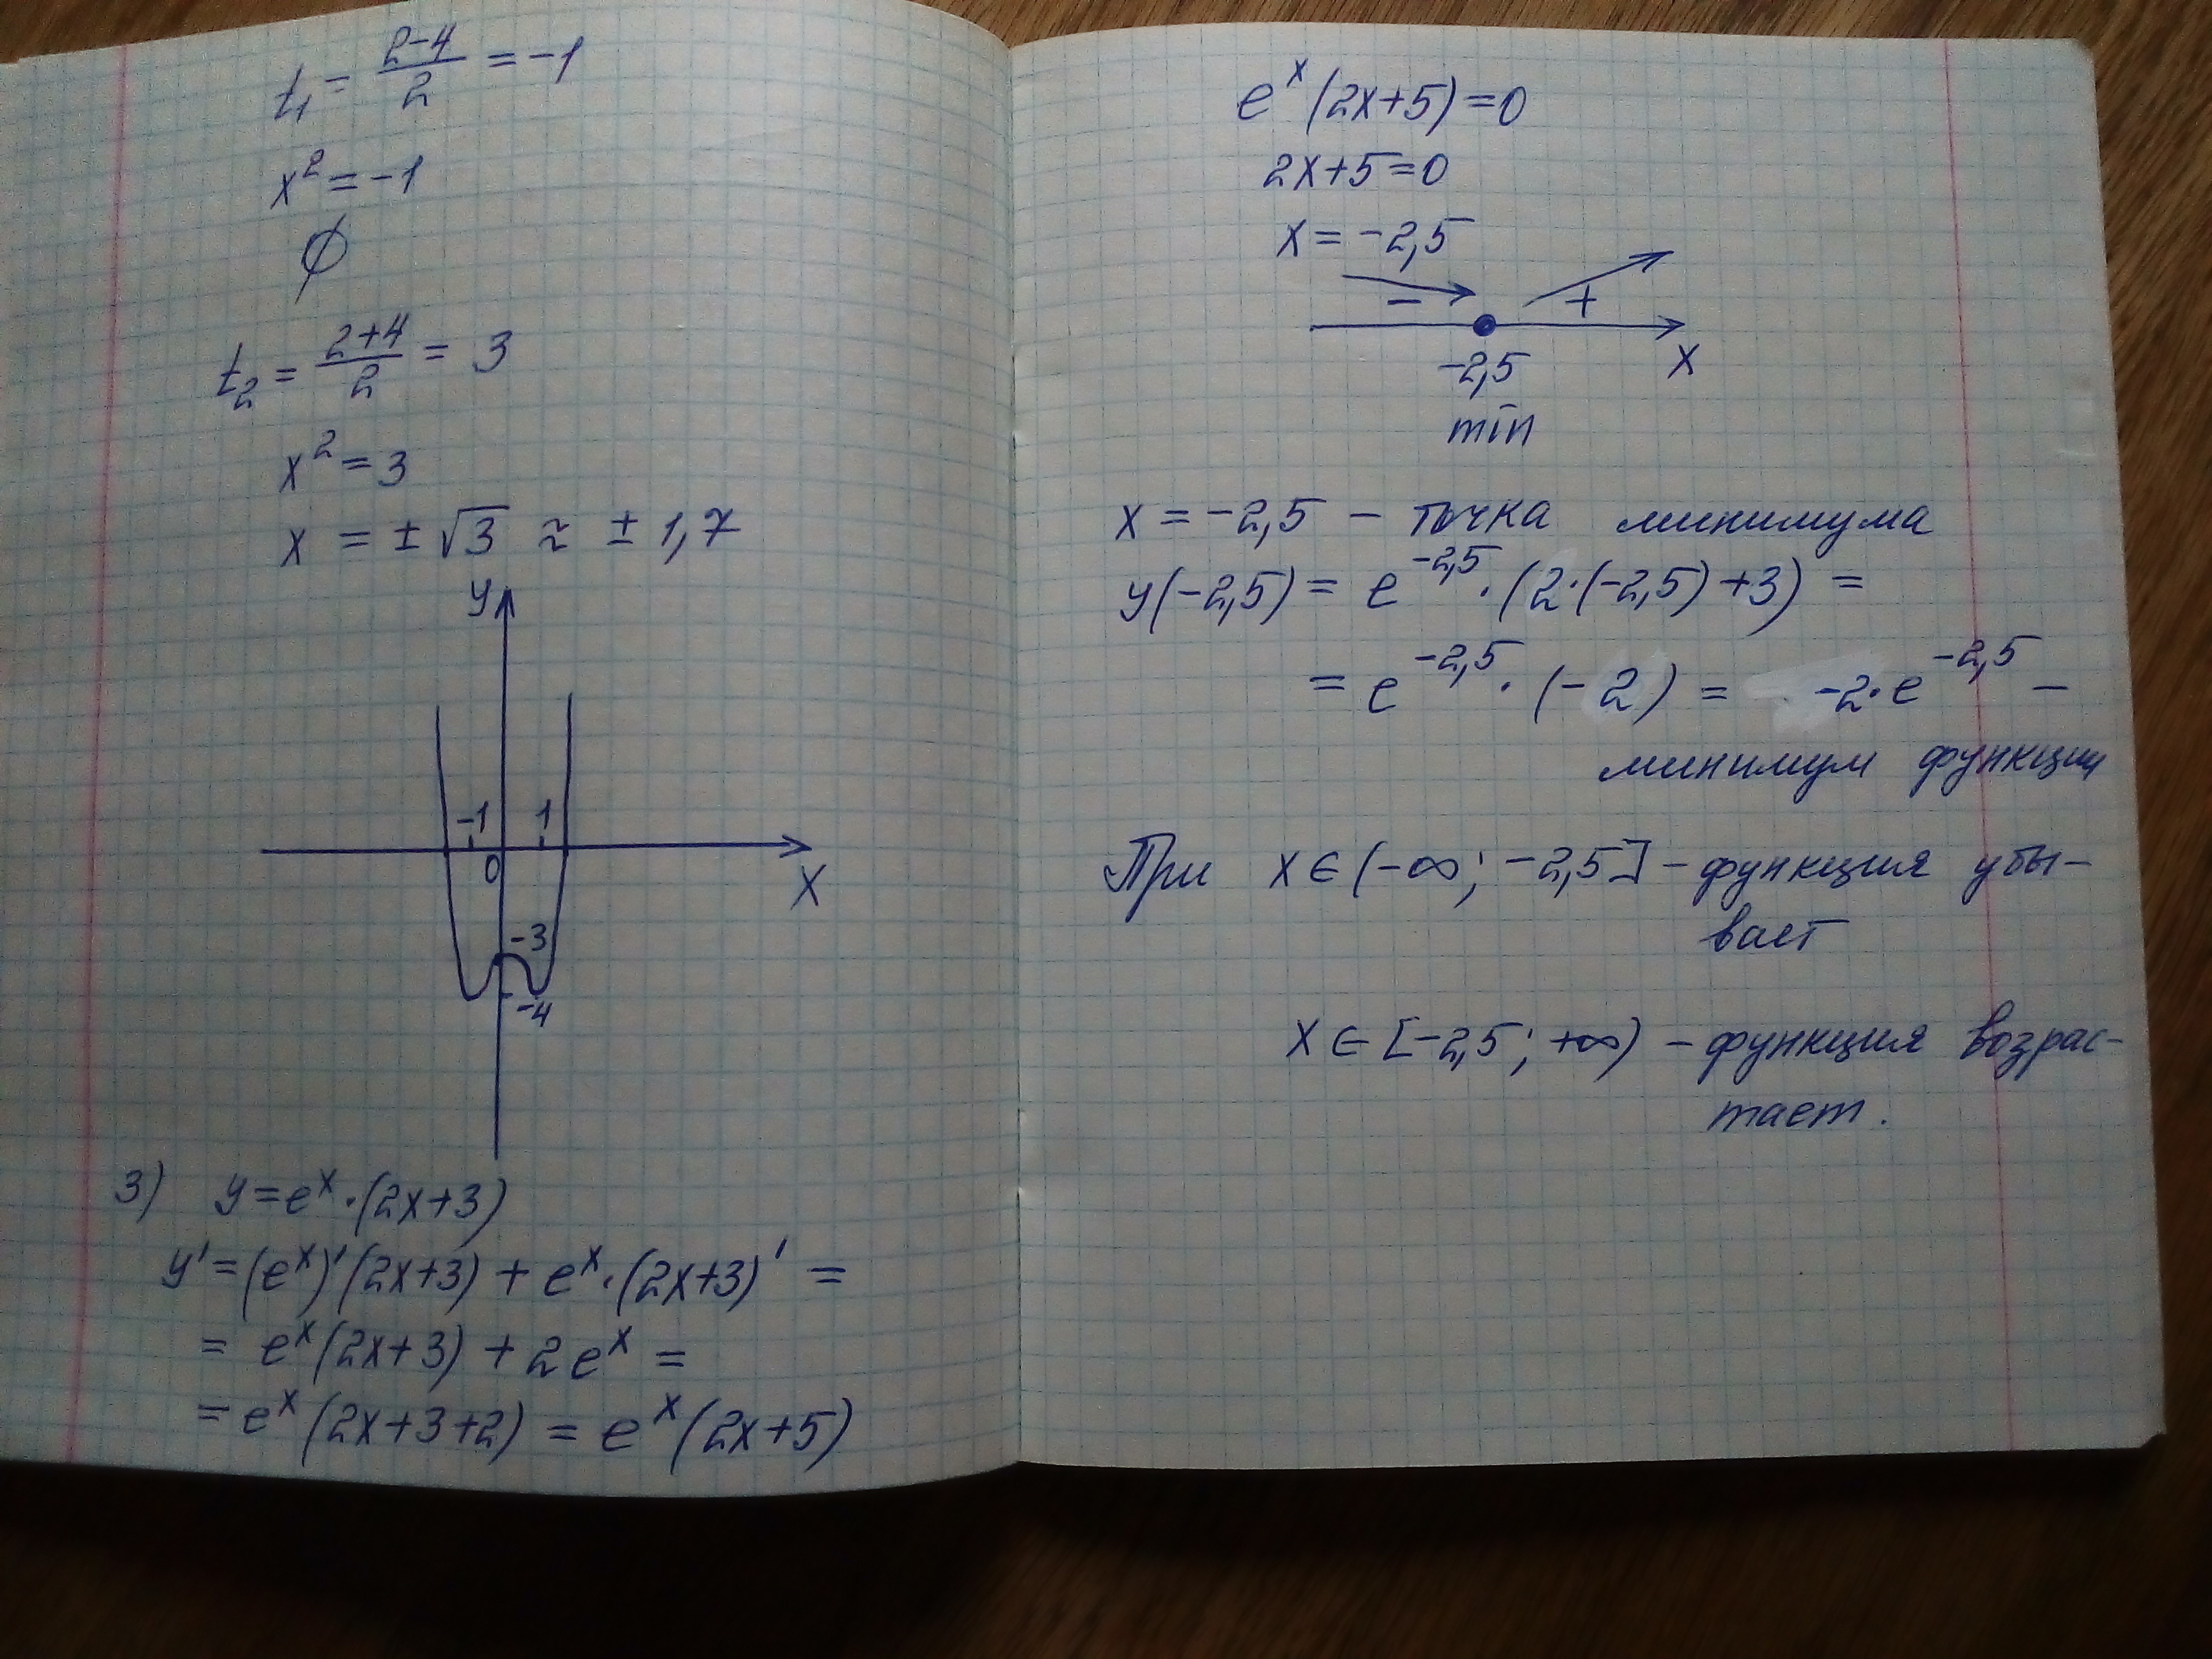 t₁ = (2-4)/2 = -1
x² = -1
∅
t₂ = (2+4)/2 = 3
x² = 3
x = ±√3 ≈ ±1,7
y
-1 1
0
x
-3
-4
3) y = eˣ·(2x+3)
y' = (eˣ)'(2x+3) + eˣ·(2x+3)' =
= eˣ(2x+3) + 2eˣ =
= eˣ(2x+3+2) = eˣ(2x+5)
eˣ(2x+5)=0
2x+5=0
x = -2,5
- +
-2,5 x
min
x = -2,5 - точка минимума
y(-2,5) = e^(-2,5)·(2·(-2,5)+3) =
= e^(-2,5)·(-2) = -2·e^(-2,5) -
минимум функции
При x ∈ (-∞; -2,5] - функция убы-
вает
x ∈ [-2,5; +∞) - функция возрас-
тает.